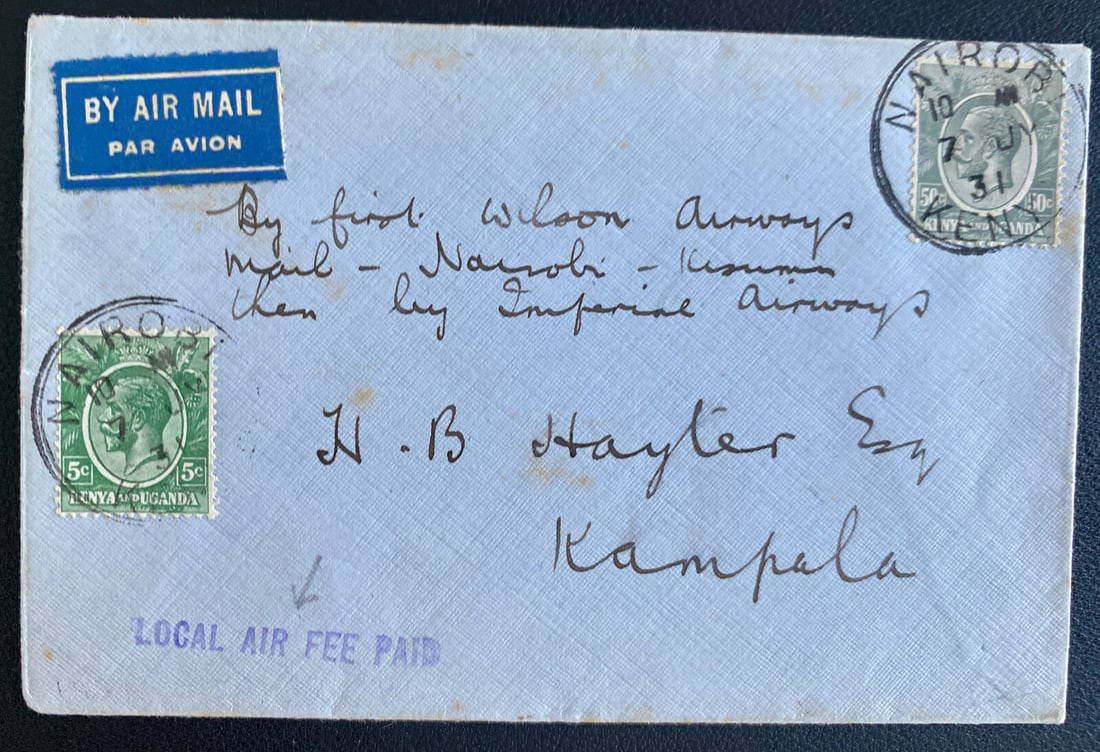 BY AIR MAIL
PAR AVION
NAIROBI
10 AM
7 JY
31
KENY
50c 50c
KENYA AND UGANDA
By first Wilson Airways
Mail - Nairobi - Kisumu
then by Imperial Airways
NAIROBI
10 AM
7
3
5c 5c
KENYA AND UGANDA
H. B Hayter Esq
Kampala
LOCAL AIR FEE PAID